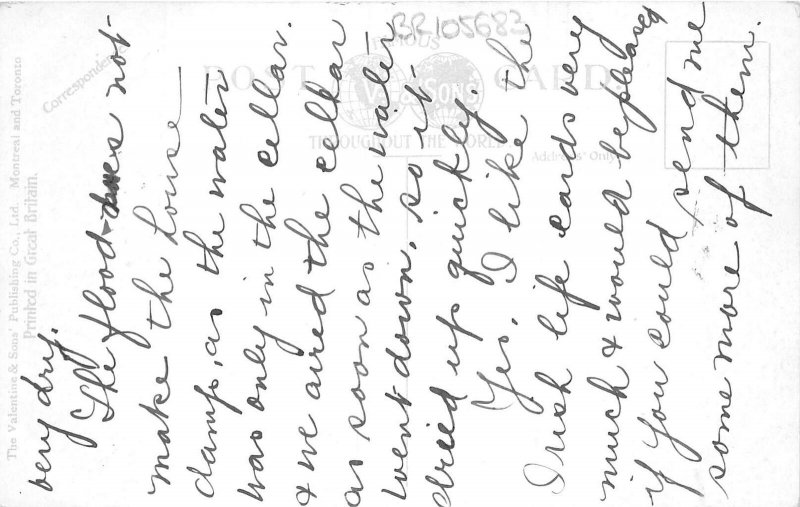 very dry.
The flood does not
make the house
damp, as the water
was only in the cellar.
& we aired the cellar
as soon as the water
went down, so it
dried up quickly.
Yes, I like the
Irish life cards very
much & would be pleased
if you could send me
some more of them.
BR105683
FAMOUS
POST CARD.
V & SONS
THROUGHOUT THE WORLD
Correspondence
Address Only
The Valentine & Sons' Publishing Co., Ltd. Montreal and Toronto
Printed in Great Britain.